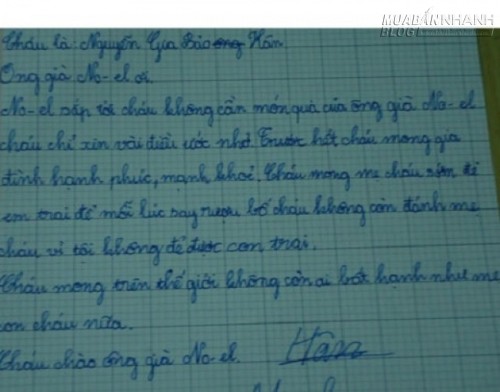 MUABÁNNHANH
BLOG
Cháu là: Nguyễn Gia Bảo ong Hân.
Ông già No-el ơi.
No-el sắp tới cháu không cần món quà của ông già No-el
cháu chỉ xin vài điều ước nhỏ. Trước hết cháu mong gia
đình hạnh phúc, mạnh khoẻ. Cháu mong mẹ cháu sớm đẻ
em trai để mỗi lúc say rượu bố cháu không còn đánh mẹ
cháu vì tội không đẻ được con trai.
Cháu mong trên thế giới không còn ai bất hạnh như mẹ
con cháu nữa.
Cháu chào ông già No-el. Hân